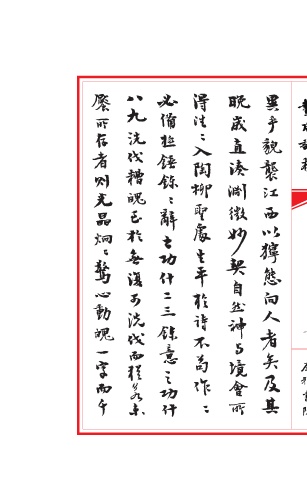 異乎貌襲江西以獰態向人者矣及其
晚歲直湊淵微妙契自然神与境會所
得往〻入陶柳聖處生平於詩不苟作〻
必備極錘鍊〻辭之功什二三鍊意之功什
八九洗伐糟魄至於無復可洗伐而猶若未
饜所存者則光晶炯〻驚心動魄一字而千